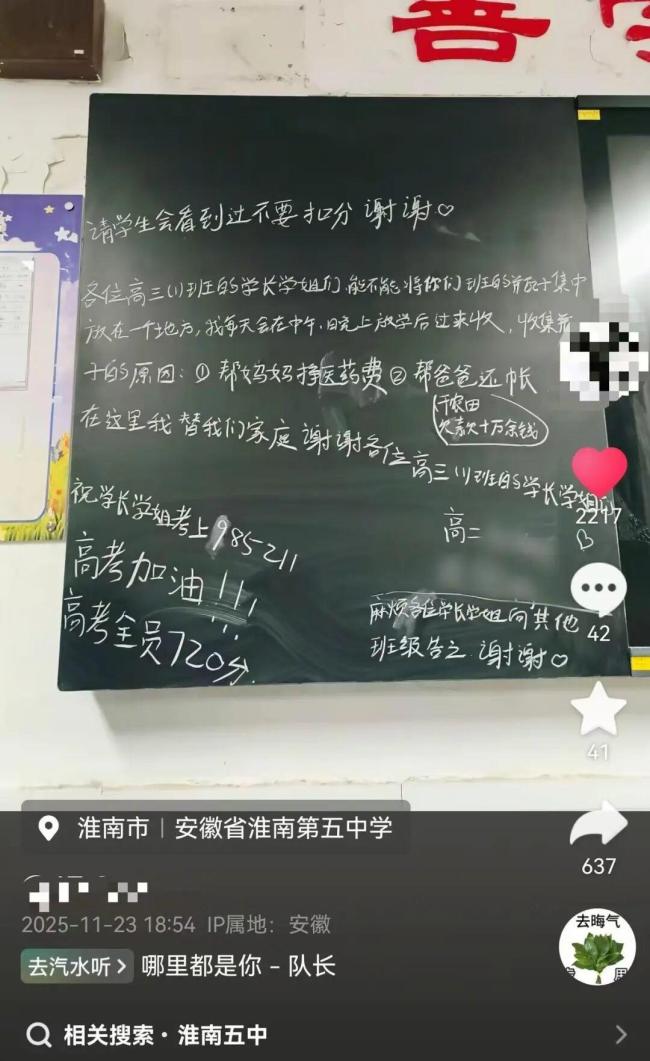 善
请学生会看到过不要扣分 谢谢♡
各位高三(1)班的学长学姐们,能不能将你们班的瓶子集中
放在一个地方,我每天会在中午、晚上放学后过来收,收集瓶
子的原因:① 帮妈妈挣医药费② 帮爸爸还帐
干农田
欠款十万余钱
在这里我替我们家庭谢谢各位高三(1)班的学长学姐们
高二
祝学长学姐考上985211
高考加油!!!
高考全员720分.
麻烦各位学长学姐向其他
班级告之 谢谢♡
2217
42
41
637
淮南市 | 安徽省淮南第五中学
2025-11-23 18:54 IP属地:安徽
去汽水听 > 哪里都是你 - 队长
去晦气
相关搜索 · 淮南五中